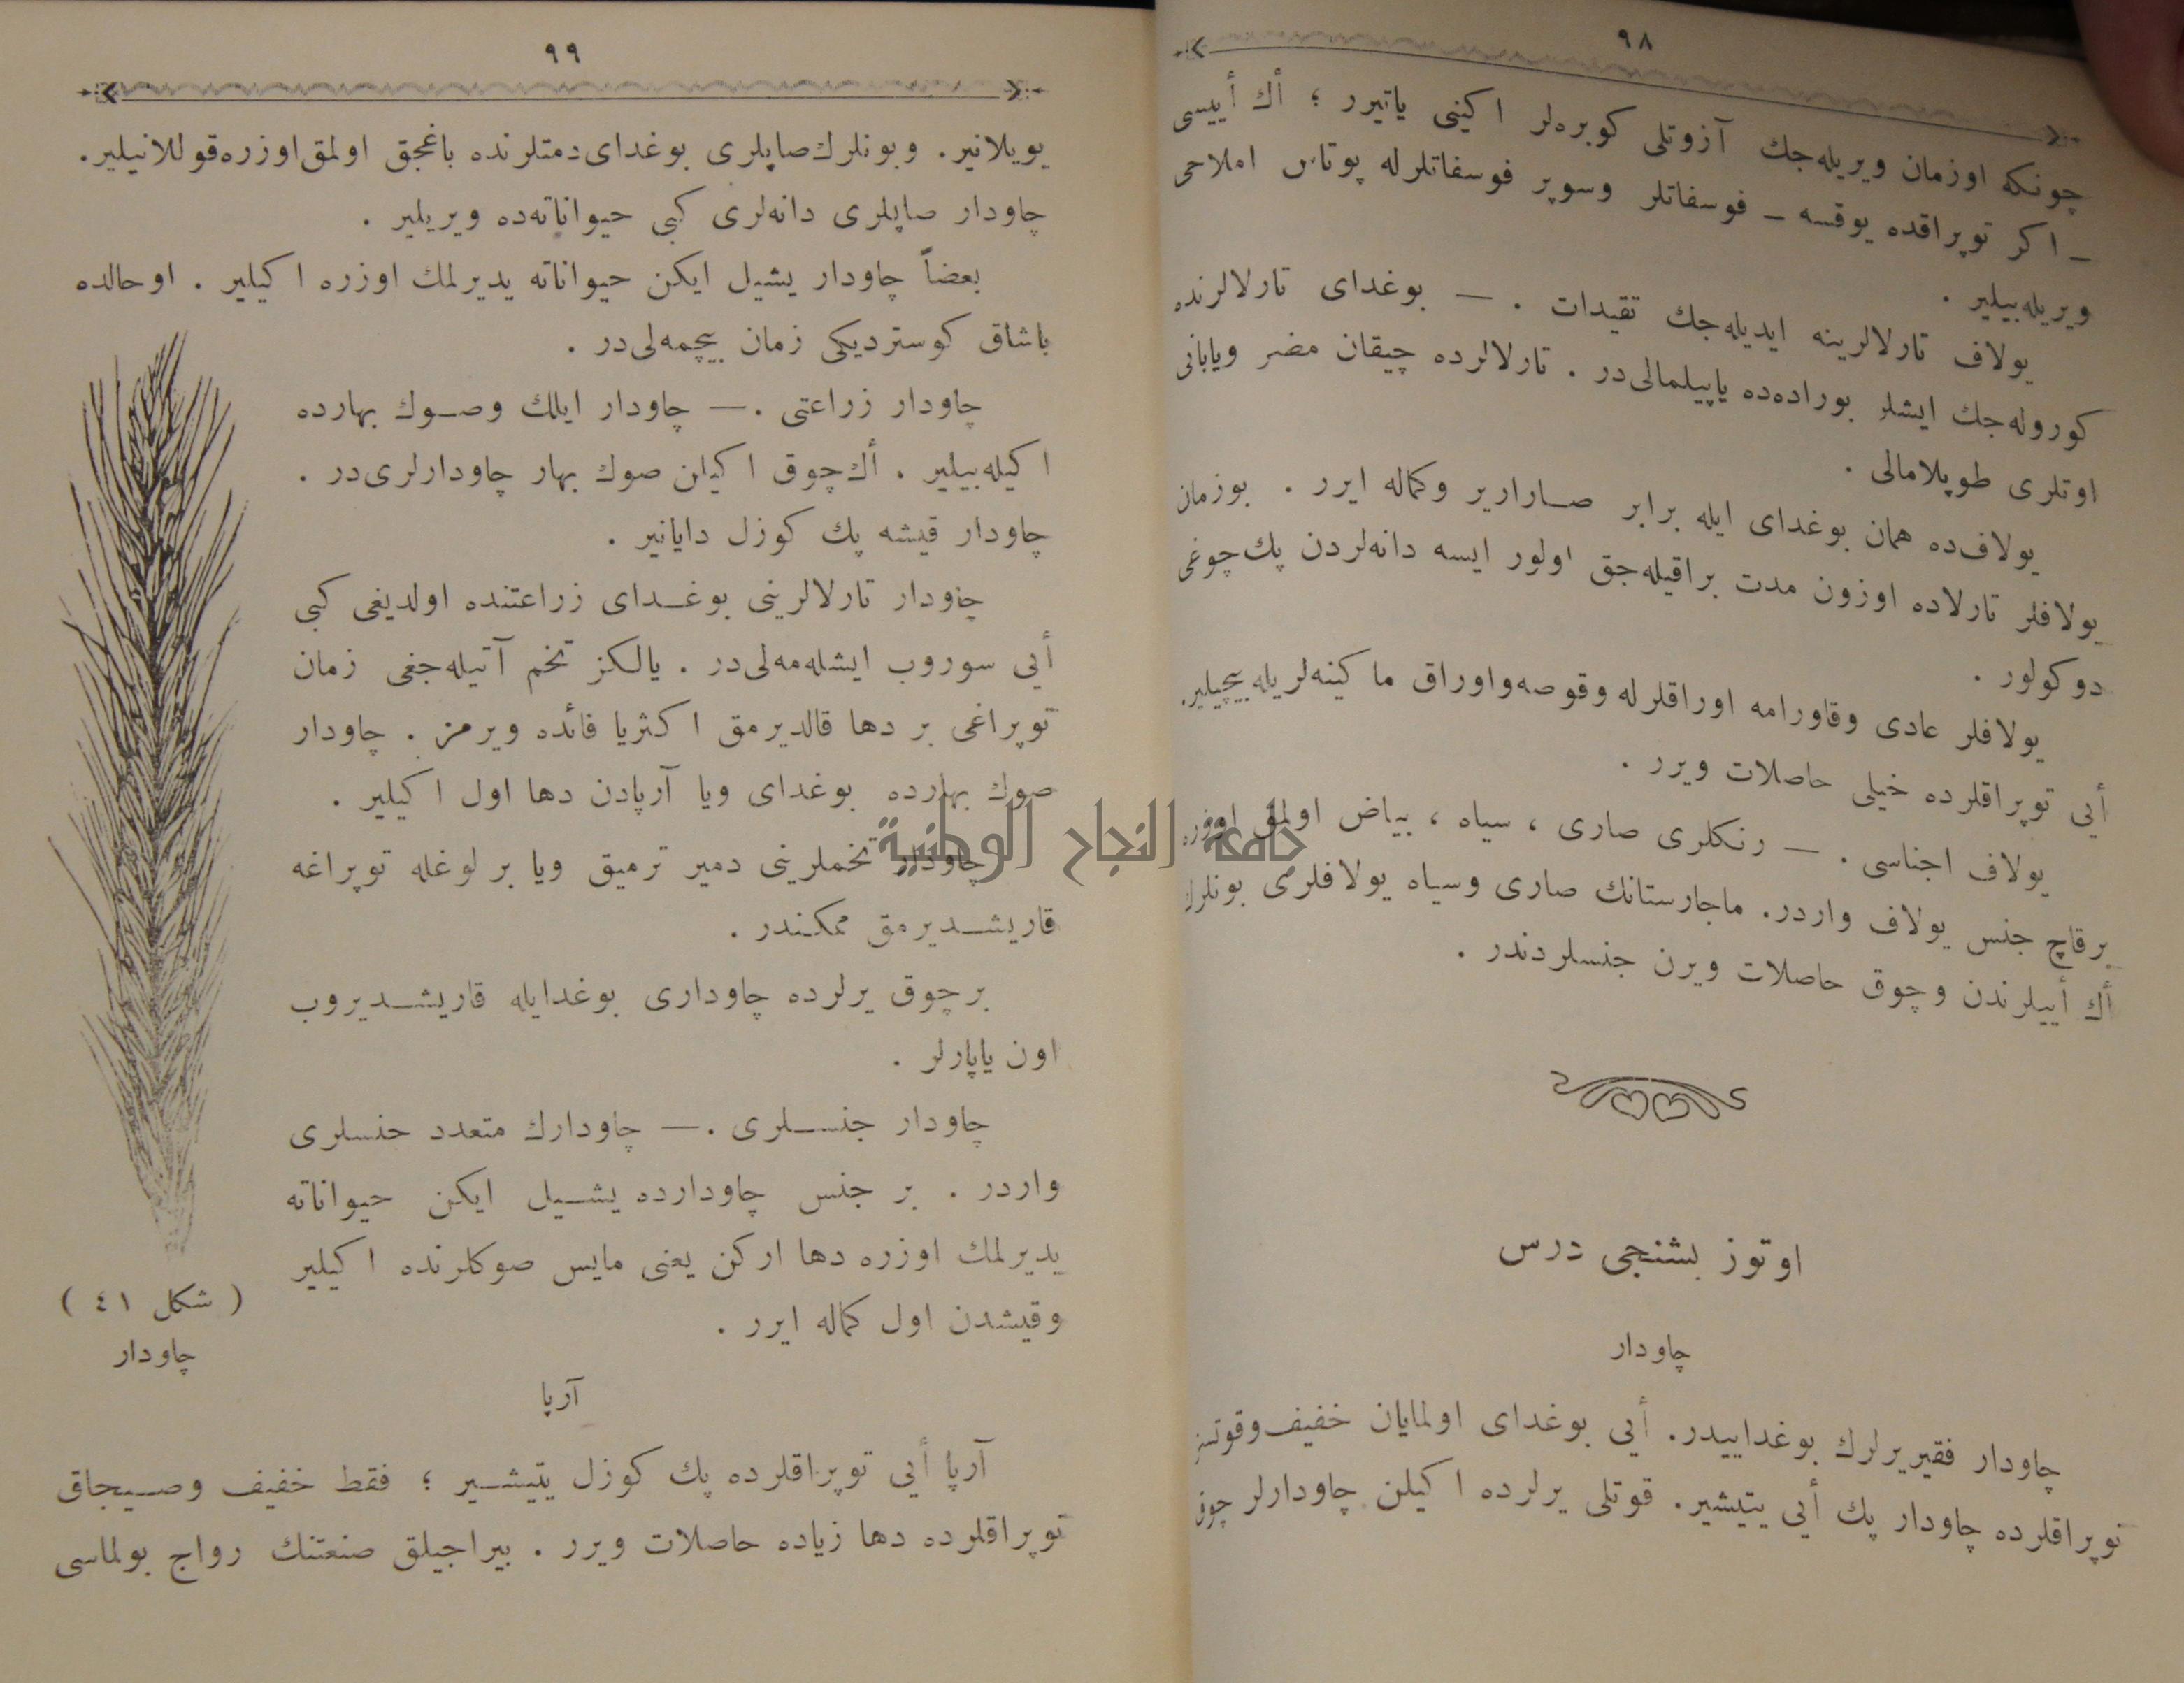 ٩٨
چونكه اوزمان ويريله‌جك آزوتلى كوبره‌لر اكينى ياتيرر ؛ أك أييسى
ـ اكر توپراقده يوقسه ـ فوسفاتلر وسوپر فوسفاتلرله پوتاس املاحى
ويريله‌بيلير .
يولاف تارلالرينه ايديله‌جك تقيدات . — بوغداى تارلالرنده
كوروله‌جك ايشلر بوراده‌ده ياپيلمالى‌در . تارلالرده چيقان مضر ويابانى
اوتلرى طوپلامالى .
يولاف‌ده همان بوغداى ايله برابر صارارير وكماله ايرر . بوزمان
يولافلر تارلاده اوزون مدت براقيله‌جق اولور ايسه دانه‌لردن پك‌چوغى
دوكولور .
يولافلر عادى وقاورامه اوراقلرله وقوصه‌واوراق ماكينه‌لريله‌بيچيلير.
أيى توپراقلرده خيلى حاصلات ويرر .
يولاف اجناسى . — رنكلرى صارى ، سياه ، بياض اولمق اوزره
برقاچ جنس يولاف واردر. ماجارستانك صارى وسياه يولافلرى بونلرك
أك أييلرندن وچوق حاصلات ويرن جنسلردندر .
اوتوز بشنجى درس
چاودار
چاودار فقيريرلرك بوغداييدر. أيى بوغداى اولمايان خفيف‌وقوتسز
توپراقلرده چاودار پك أيى يتيشير. قوتلى يرلرده اكيلن چاودارلر چوق
٩٩
بويلانير. وبونلرك‌صاپلرى بوغداى‌دمتلرنده باغجق اولمق‌اوزره‌قوللانيلير.
چاودار صاپلرى دانه‌لرى كبى حيواناته‌ده ويريلير .
بعضاً چاودار يشيل ايكن حيواناته يديرلمك اوزره اكيلير . اوحالده
باشاق كوسترديكى زمان بيچمه‌لى‌در .
چاودار زراعتى . — چاودار ايلك وصوك بهارده
اكيله‌بيلير . أك‌چوق اكيلن صوك بهار چاودارلرى‌در .
چاودار قيشه پك كوزل دايانير .
چاودار تارلالرينى بوغداى زراعتنده اولديغى كبى
أيى سوروب ايشله‌مه‌لى‌در . يالكز تخم آتيله‌جغى زمان
توپراغى بر دها قالديرمق اكثريا فائده ويرمز . چاودار
صوك بهارده بوغداى ويا آرپادن دها اول اكيلير .
چاودار تخملرينى دمير ترميق ويا بر لوغله توپراغه
قاريشديرمق ممكندر .
برچوق يرلرده چاودارى بوغدايله قاريشديروب
اون ياپارلر .
چاودار جنسلرى . — چاودارك متعدد جنسلرى
واردر . بر جنس چاودارده يشيل ايكن حيواناته
يديرلمك اوزره دها اركن يعنى مايس صوكلرنده اكيلير
وقيشدن اول كماله ايرر .
( شكل ٤١ )
چاودار
آرپا
آرپا أيى توپراقلرده پك كوزل يتيشير ؛ فقط خفيف وصيجاق
توپراقلرده دها زياده حاصلات ويرر . بيراجيلق صنعتنك رواج بولماسى
جامعة النجاح الوطنية